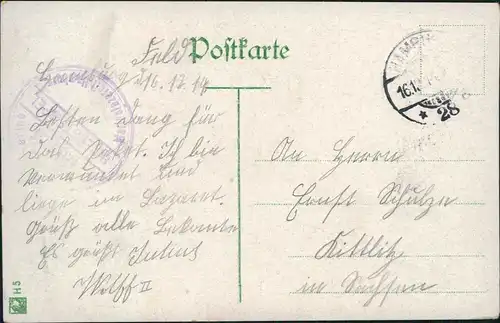 Feld Postkarte
Hamburg d 16.12.14
Besten Dank für
das Paket. Ich bin
Verwundet und
liege im Lazaret.
Grüß alle Bekante
Es grüßt Julius
Wolff II
HAMBURG
16.12.
* 28
An Herrn
Ernst Schulze
Kittlitz
in Sachsen
H 5